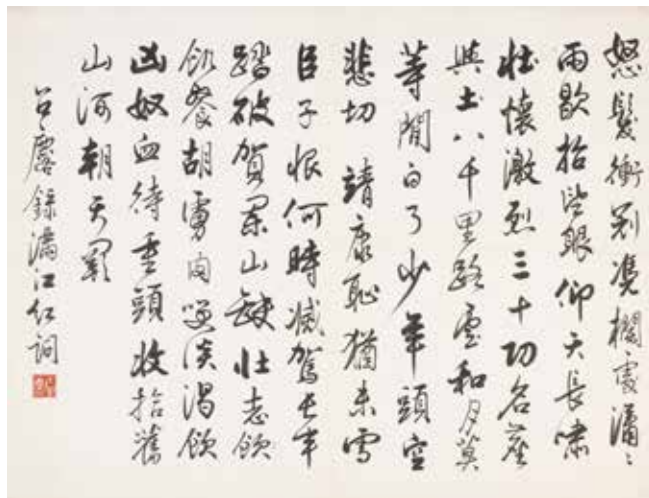 怒髮衝冠憑欄處瀟〻
雨歇抬望眼仰天長嘯
壯懷激烈三十功名塵
與土八千里路雲和月莫
等閒白了少年頭空
悲切 靖康恥猶未雪
臣子恨何時滅駕長車
踏破賀蘭山缺壯志飲
飢餐胡虜肉笑談渴飲
匈奴血待重頭收拾舊
山河朝天闕
呂錄滿江紅詞